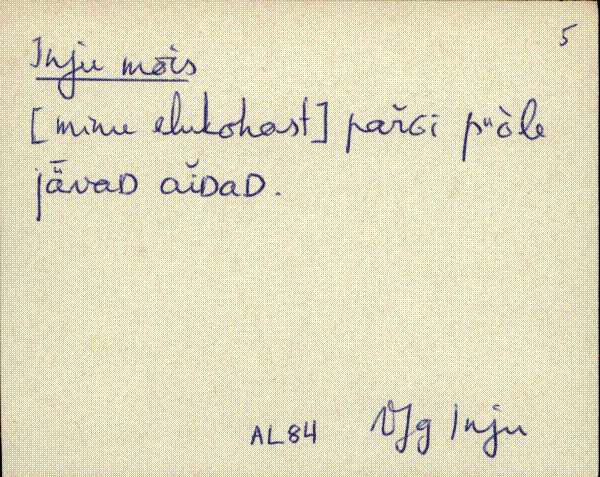 5
Inju mõis
[minu elukohast] parĭGi püòle
jä̈vaD aĭDaD.
AL84 VJg Inju